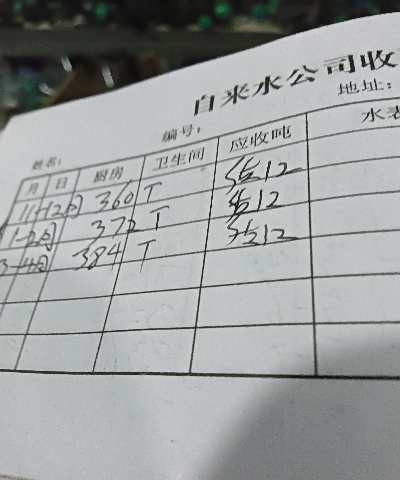 自来水公司收
编号： 地址：
姓名：
月 日 厨房 卫生间 应收吨 水表
11-12月 360 T 估12
1-2月 372 T 估12
3-4月 384 T 估12